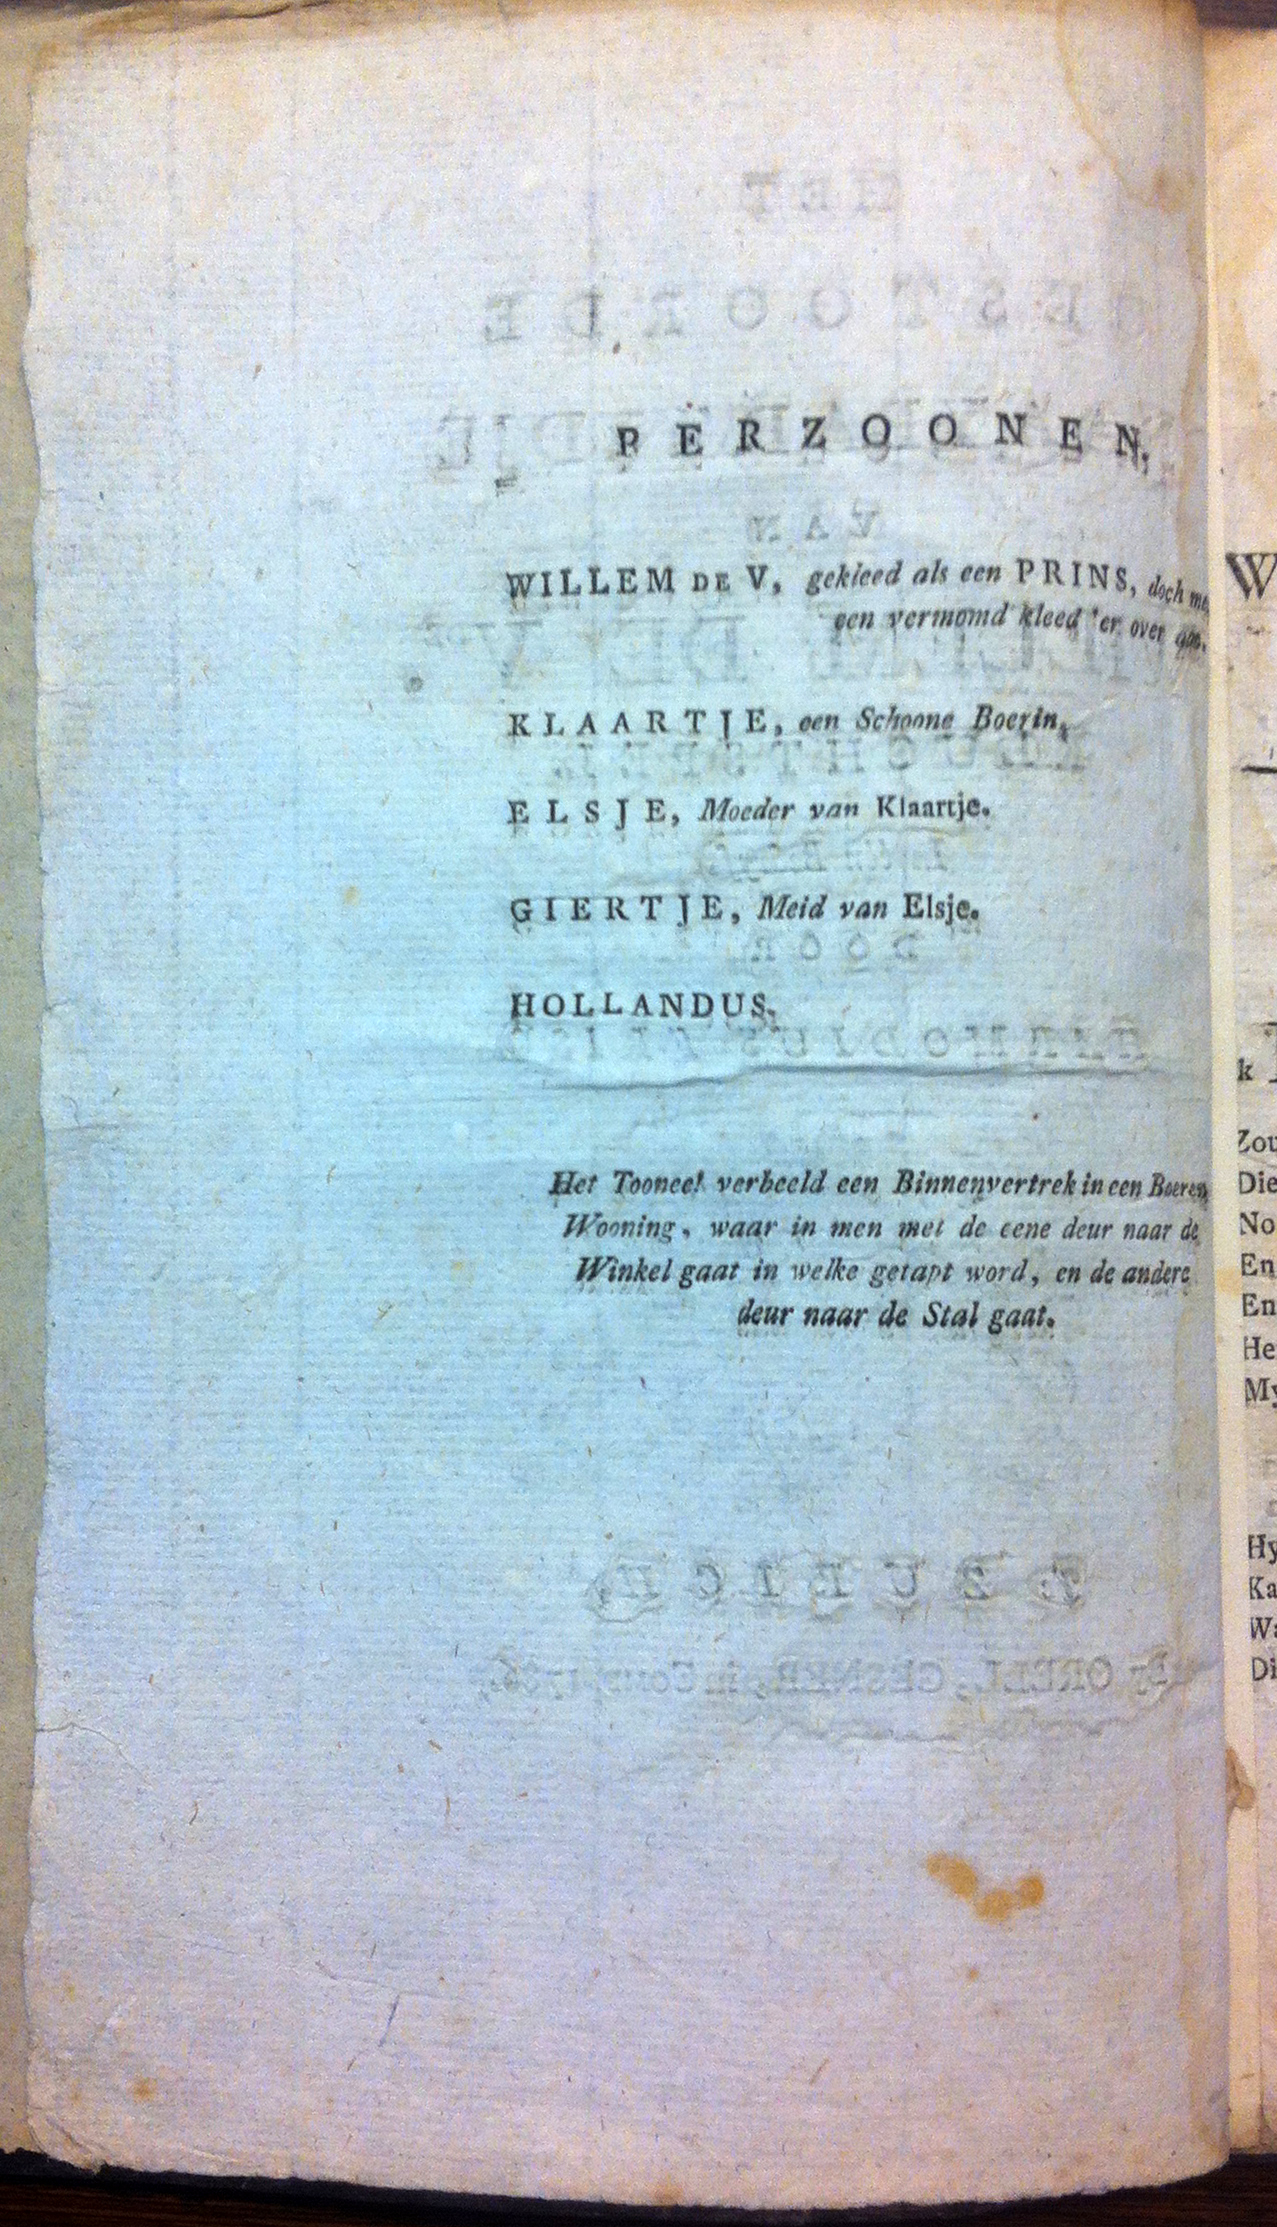 PERZOONEN.
WILLEM DE V, gekleed als een PRINS, doch met
een vermomd kleed 'er over aan.
KLAARTJE, een Schoone Boerin.
ELSJE, Moeder van Klaartje.
GIERTJE, Meid van Elsje.
HOLLANDUS.
Het Tooneel verbeeld een Binnenvertrek in een Boeren
Wooning, waar in men met de eene deur naar de
Winkel gaat in welke getapt word, en de andere
deur naar de Stal gaat.
W
k
Zou
Die
No
En
En
He
My
Hy
Ka
Wa
Di